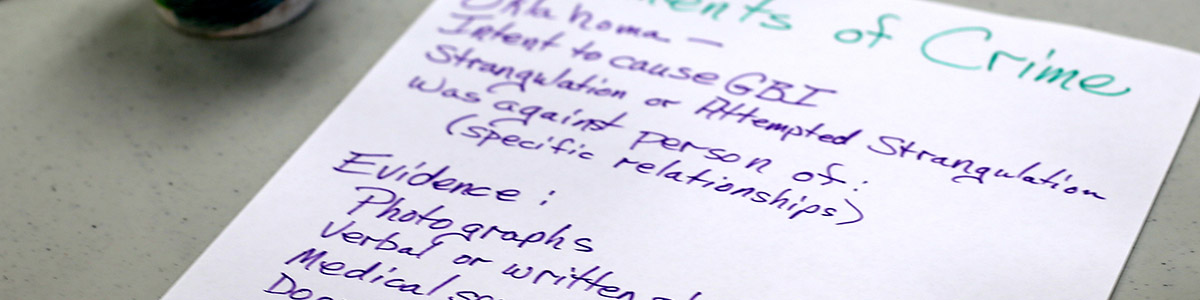 of Crime
Oklahoma —
Intent to cause GBI
Strangulation or Attempted Strangulation
was against person of:
(specific relationships)
Evidence:
Photographs
Verbal or written
Medical